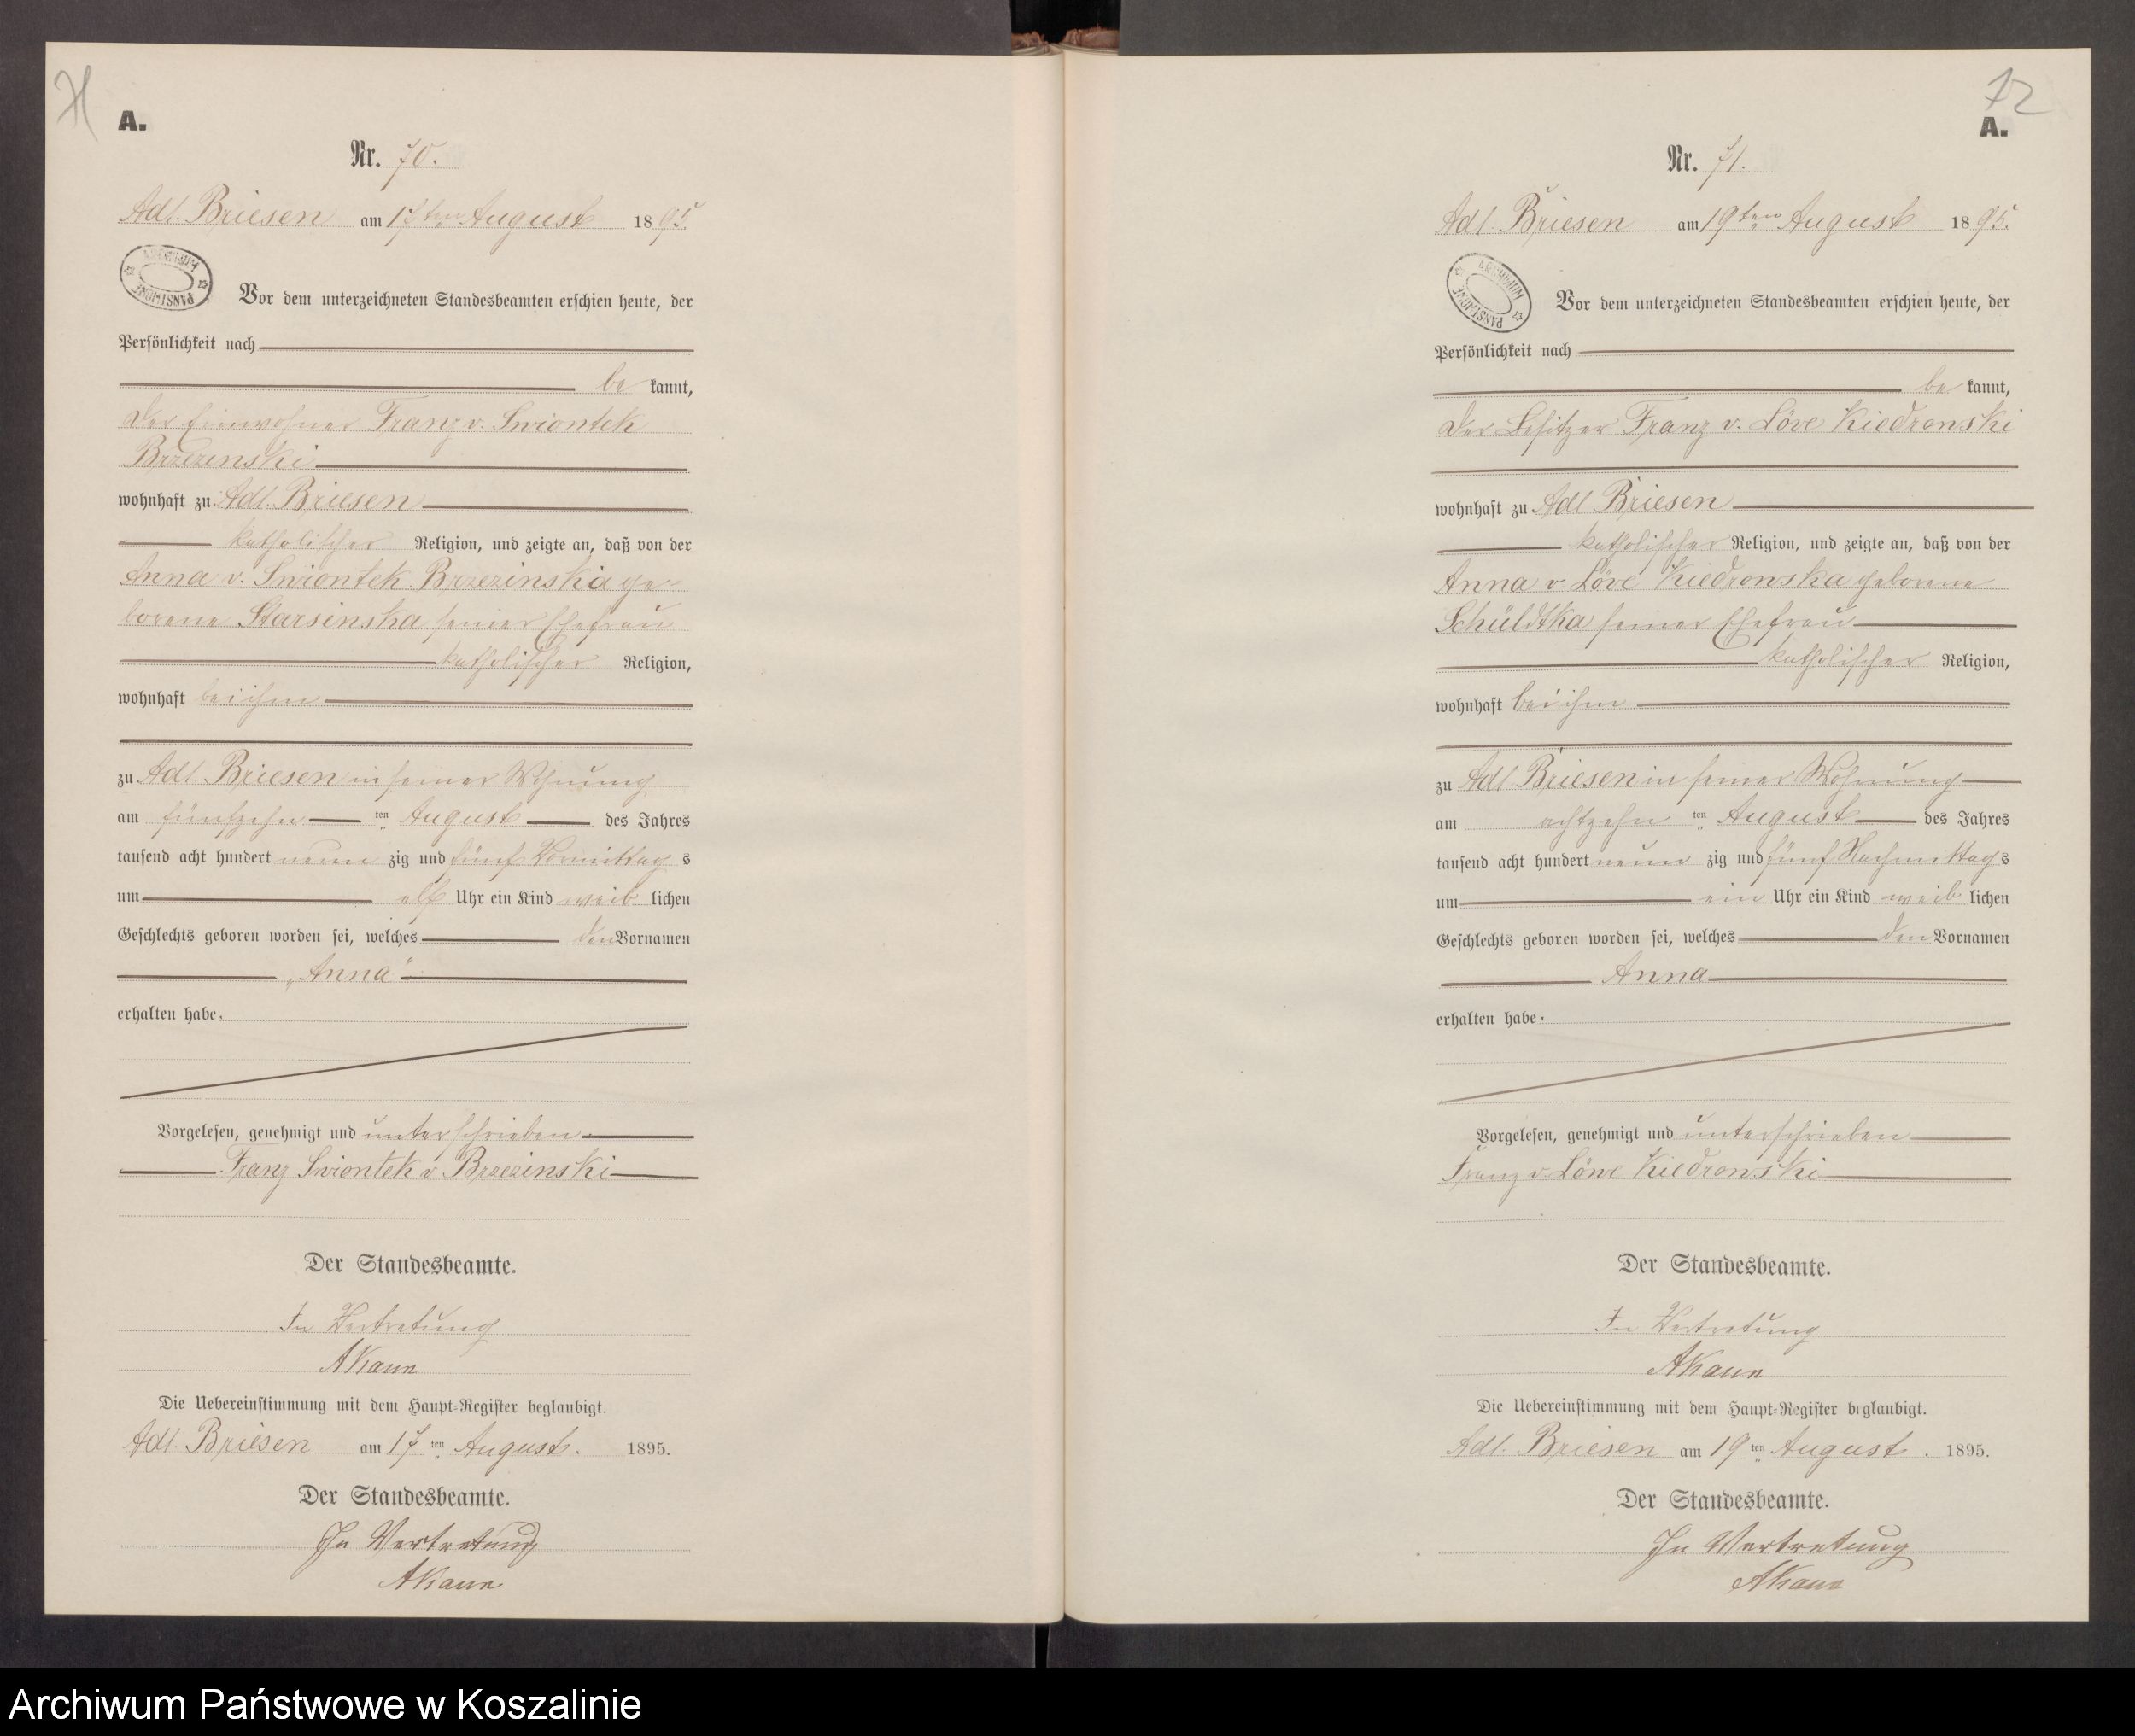 71
A.
Nr. 70.
Adl. Briesen am 17ten August 1895.
ARCHIWUM PAŃSTWOWE
Vor dem unterzeichneten Standesbeamten erschien heute, der
Persönlichkeit nach
be kannt,
der Einwohner Franz v. Swiontek
Brzezinski
wohnhaft zu Adl. Briesen
katholischer Religion, und zeigte an, daß von der
Anna v. Swiontek Brzezinska ge-
borene Starsinska seiner Ehefrau
katholischer Religion,
wohnhaft bei ihm
zu Adl. Briesen in seiner Wohnung
am fünfzehn ten August des Jahres
tausend acht hundert neun zig und fünf Vormittag s
um elf Uhr ein Kind weib lichen
Geschlechts geboren worden sei, welches den Vornamen
„Anna"
erhalten habe.
Vorgelesen, genehmigt und unterschrieben
Franz Swiontek v Brzezinski
Der Standesbeamte.
In Vertretung
Die Uebereinstimmung mit dem Haupt-Register beglaubigt.
Adl. Briesen am 17 ten August. 1895.
Der Standesbeamte.
In Vertretung
72
A.
Nr. 71.
Adl. Briesen am 19ten August 1895.
ARCHIWUM PAŃSTWOWE
Vor dem unterzeichneten Standesbeamten erschien heute, der
Persönlichkeit nach
be kannt,
der Besitzer Franz v. Löve Kiedronski
wohnhaft zu Adl Briesen
katholischer Religion, und zeigte an, daß von der
Anna v Löve Kiedronska geborene
Schüldtka seiner Ehefrau
katholischer Religion,
wohnhaft bei ihm
zu Adl Briesen in seiner Wohnung
am achtzehn ten August des Jahres
tausend acht hundert neun zig und fünf Nachmittags
um ein Uhr ein Kind weib lichen
Geschlechts geboren worden sei, welches den Vornamen
Anna
erhalten habe.
Vorgelesen, genehmigt und unterschrieben
Franz v. Löwe Kiedronski
Der Standesbeamte.
In Vertretung
Die Uebereinstimmung mit dem Haupt-Register beglaubigt.
Adl. Briesen am 19 ten August. 1895.
Der Standesbeamte.
In Vertretung
Archiwum Państwowe w Koszalinie